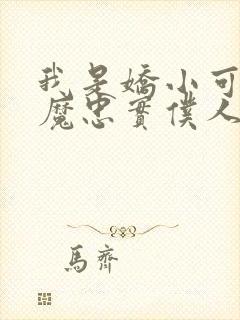 我是嬌小可
魔忠實僕人
馬齊